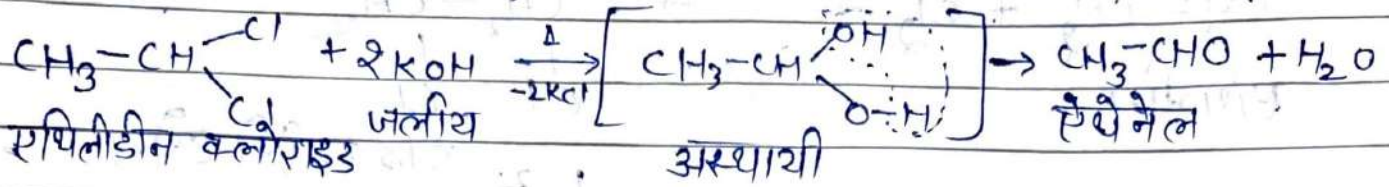 CH₃-CH Cl Cl + 2KOH Δ -2KCl → [ CH₃-CH OH O-H ] → CH₃-CHO + H₂O
एथिलीडीन क्लोराइड जलीय अस्थायी ऐथेनेल